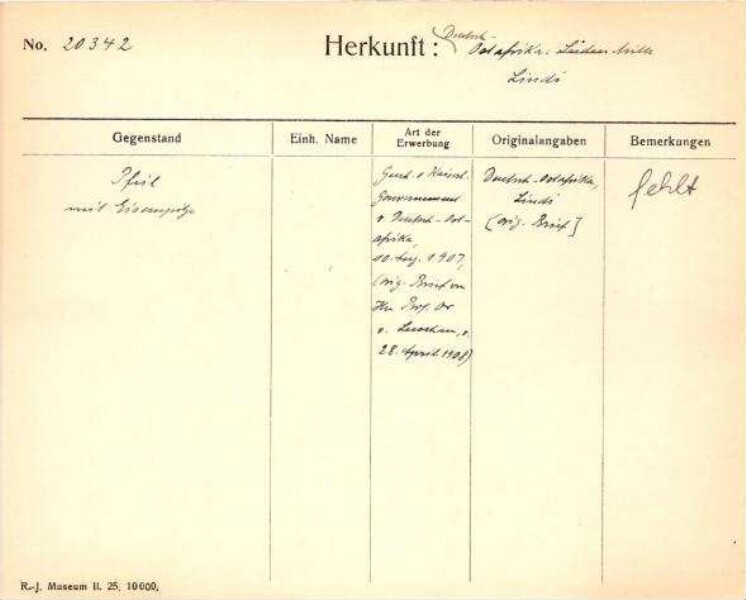 No. 20342
Herkunft: Deutsch-
Ostafrika.
Lindi
Gegenstand
Einh. Name
Art der
Erwerbung
Originalangaben
Bemerkungen
Pfeil
mit Eisenspitze
Gesch. v Kaiserl.
Gouvernement
v Deutsch-Ost-
afrika,
1907,
(orig. Brief von
Hrn Prof. Dr
v. Luschan, v.
28. April 1908)
Deutsch-Ostafrika,
Lindi
[orig. Brief]
fehlt
R.-J. Museum II. 25, 10000.